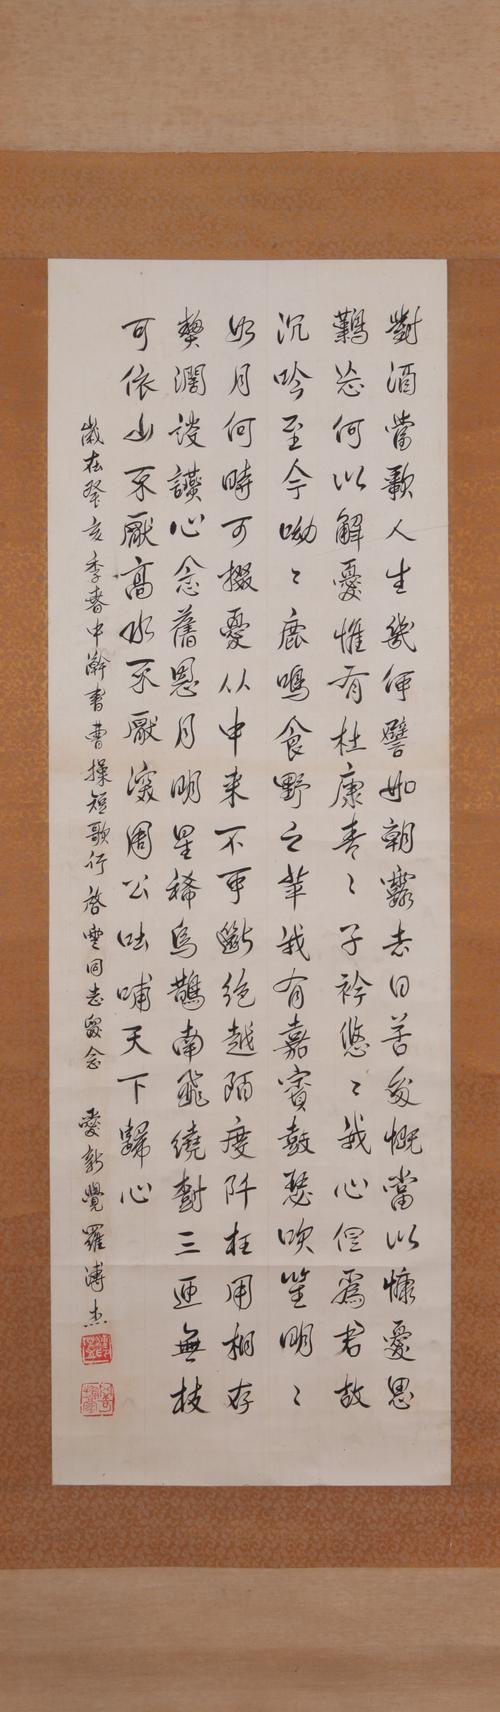 對酒當歌人生幾何譬如朝露去日苦多慨當以慷憂思
難忘何以解憂惟有杜康青〻子衿悠〻我心但爲君故
沉吟至今呦〻鹿鳴食野之苹我有嘉賓鼓瑟吹笙明〻
如月何時可掇憂从中来不可斷絶越陌度阡枉用相存
契闊談讌心念舊恩月明星稀烏鵲南飛繞樹三匝無枝
可依山不厭高水不厭深周公吐哺天下歸心
歲在癸亥季春中澣書曹操短歌行啓同志留念 愛新覺羅溥杰